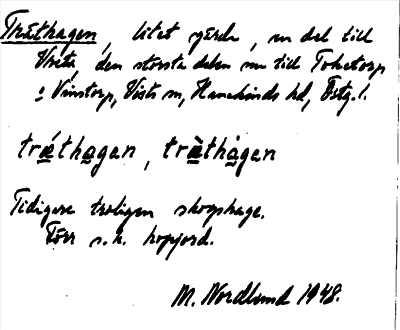 Träthagen, litet gärde, en del till
Vreta, den största delen nu till Toketorp
o Vinstorp, Vists sn, Hanekinds hd, Östg.l.
trǽthagen, træ̀thàgen
Tidigere troligen skogshage.
Torr s.k. hopjord.
M. Nordlund 1948.